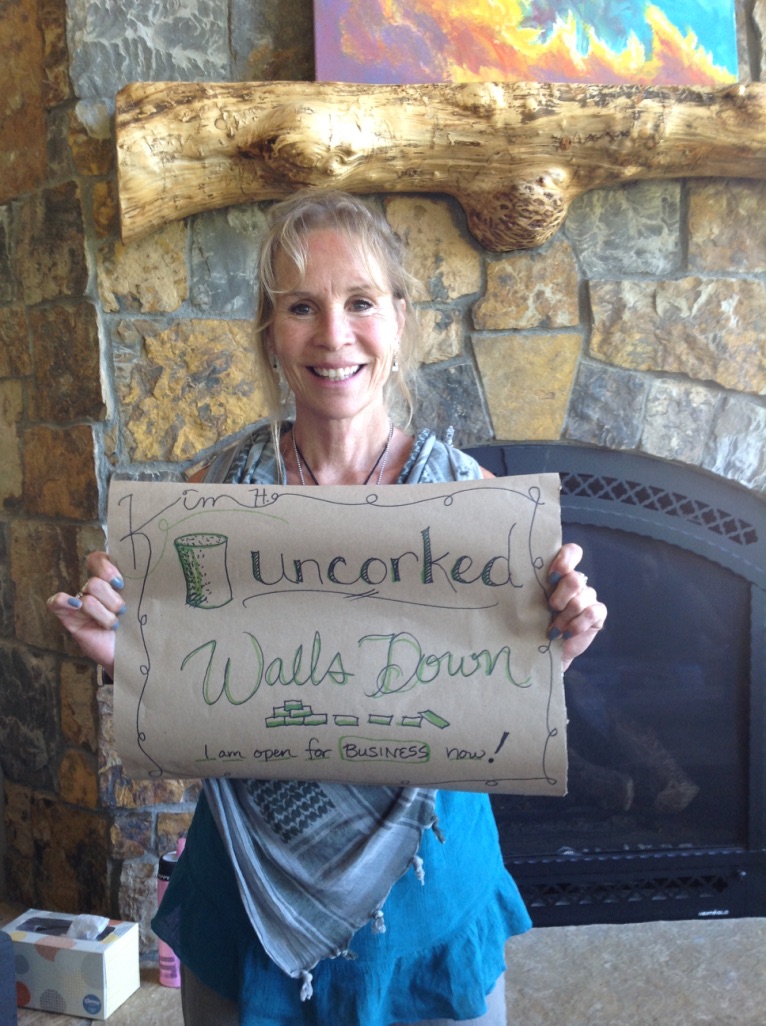 Kim H.
uncorked
Walls Down
I am open for BUSINESS now!